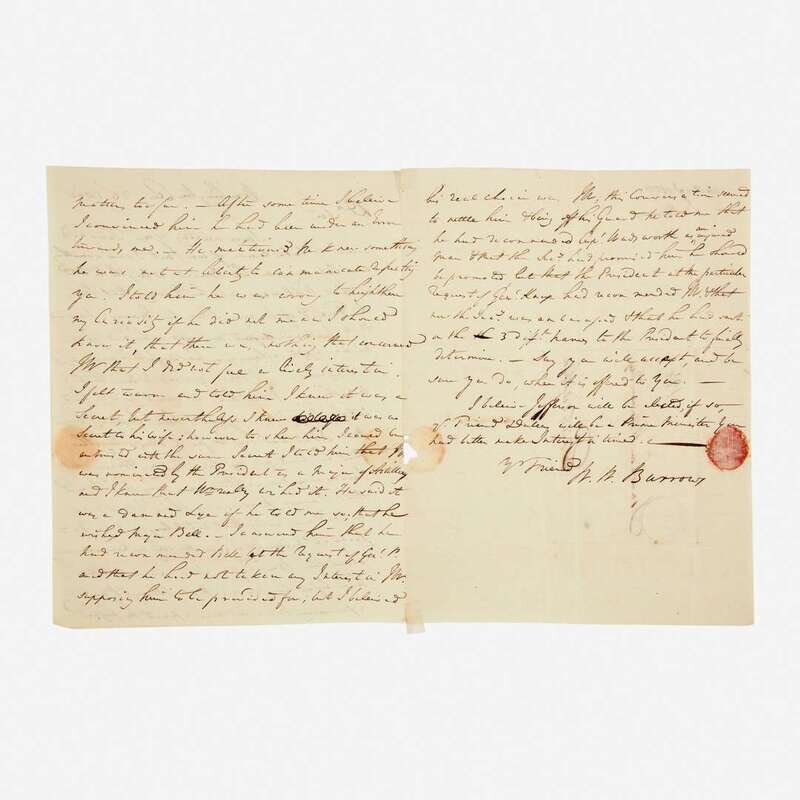 matters too far. – After some time I believe
I convinced him he had been under an Error
towards me. – He mentioned He knew something
he was not at liberty to communicate respecting
you. I told him he was wrong to heighten
my Curiosity if he did not mean I should
know it, that there was nothing that concerned
W that I did not feel a lively interest in.
I felt warm and told him I knew it was a
Secret, but nevertheless I knew it was no
Secret to his wife; however to shew him, I
entrusted with the same Secret I told him that W
was nominated by the President as a Major of Artillery
and I knew that wished it. He said it
was a damned Lye if he told me so; that he
wished Major Bell. – I answered him that he
had recommended Bell at the request of Genl P.
and that he had not taken any Interest in W.
supposing him to be provided for, but I believed
his real choice was W, this Conversation seemed
to nettle him & being off his Guard he told me that
he had recommended Capt Wadsworth as an injured
man & that the had promised him he should
be promoted but that the President at the particular
request of Genl Knox had recommended W. & that
now the Secy was & that he had sent
on the 3 difft names to the President to finally
determine. – Say you will accept, and be
sure you do, when it is offered to you. –
I believe Jefferson will be elected, if so,
yr Friend will be a Prime Minister you
had better make Interest in time. –
Yr Friend
W. W. Burrows